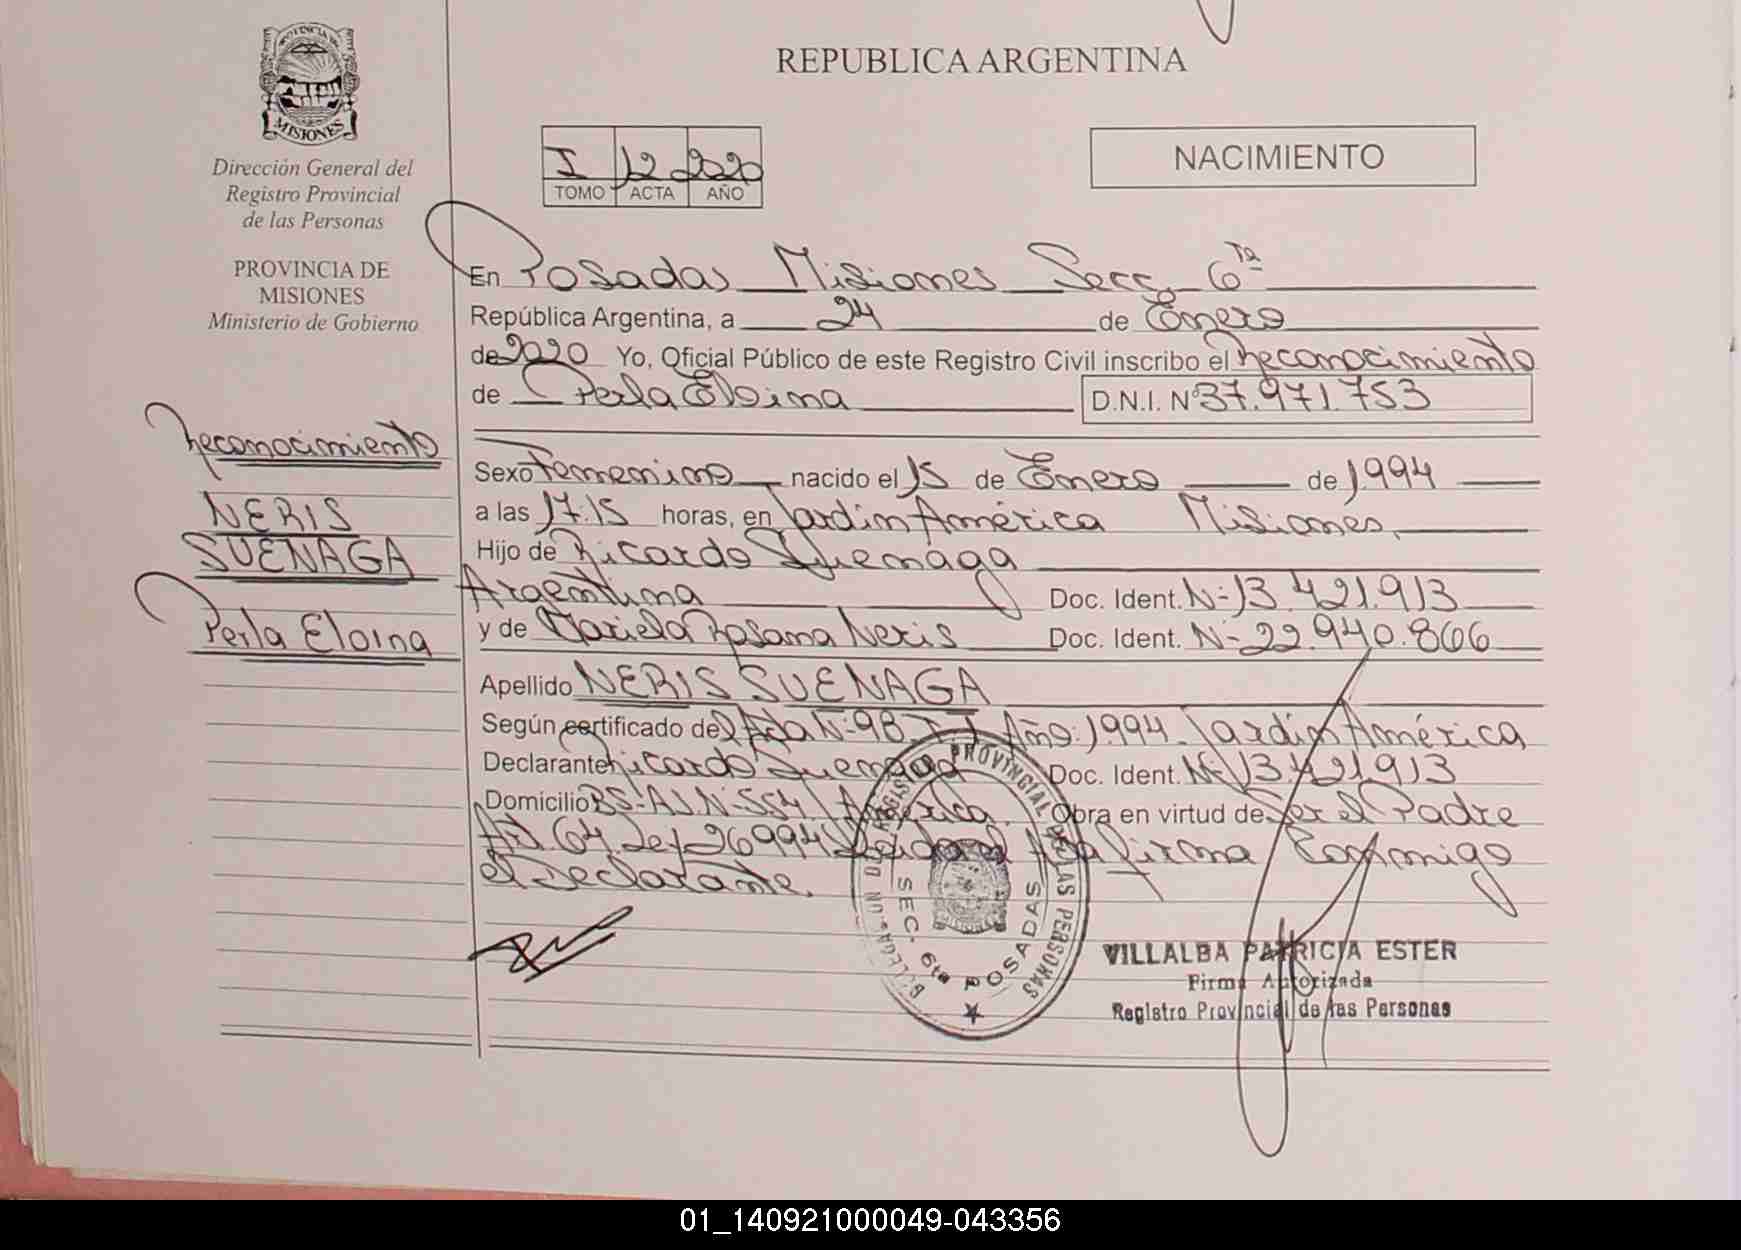 PROVINCIA DE
MISIONES
Dirección General del
Registro Provincial
de las Personas
PROVINCIA DE
MISIONES
Ministerio de Gobierno
Reconocimiento
NERIS
SUENAGA
Perla Eloina
REPUBLICA ARGENTINA
I 12 2020
TOMO ACTA AÑO
NACIMIENTO
En Posadas Misiones Secc. 6ta
República Argentina, a 24 de Enero
de 2020 Yo, Oficial Público de este Registro Civil inscribo el Reconocimiento
de Perla Eloina D.N.I. Nº 37.971.753
Sexo Femenino nacido el 15 de Enero de 1994
a las 17:15 horas, en Jardín América Misiones
Hijo de Ricardo Suenaga
Argentina Doc. Ident. Nº 13.421.913
y de Mariela Rosana Neris Doc. Ident. Nº 22.940.866
Apellido NERIS SUENAGA
Según certificado de Acta Nº 98 Año: 1994 Jardín América
Declarante Ricardo Suenaga Doc. Ident. Nº 13.421.913
Domicilio BS-AS Nº 554 J América. Obra en virtud de Ser el Padre
Art. 64 Ley 26994 Leída el Acta firma Conmigo
el Declarante.
PROVINCIAL DE LAS PERSONAS
SEC. 6ta POSADAS
VILLALBA PATRICIA ESTER
Firma Autorizada
Registro Provincial de las Personas
01_140921000049-043356